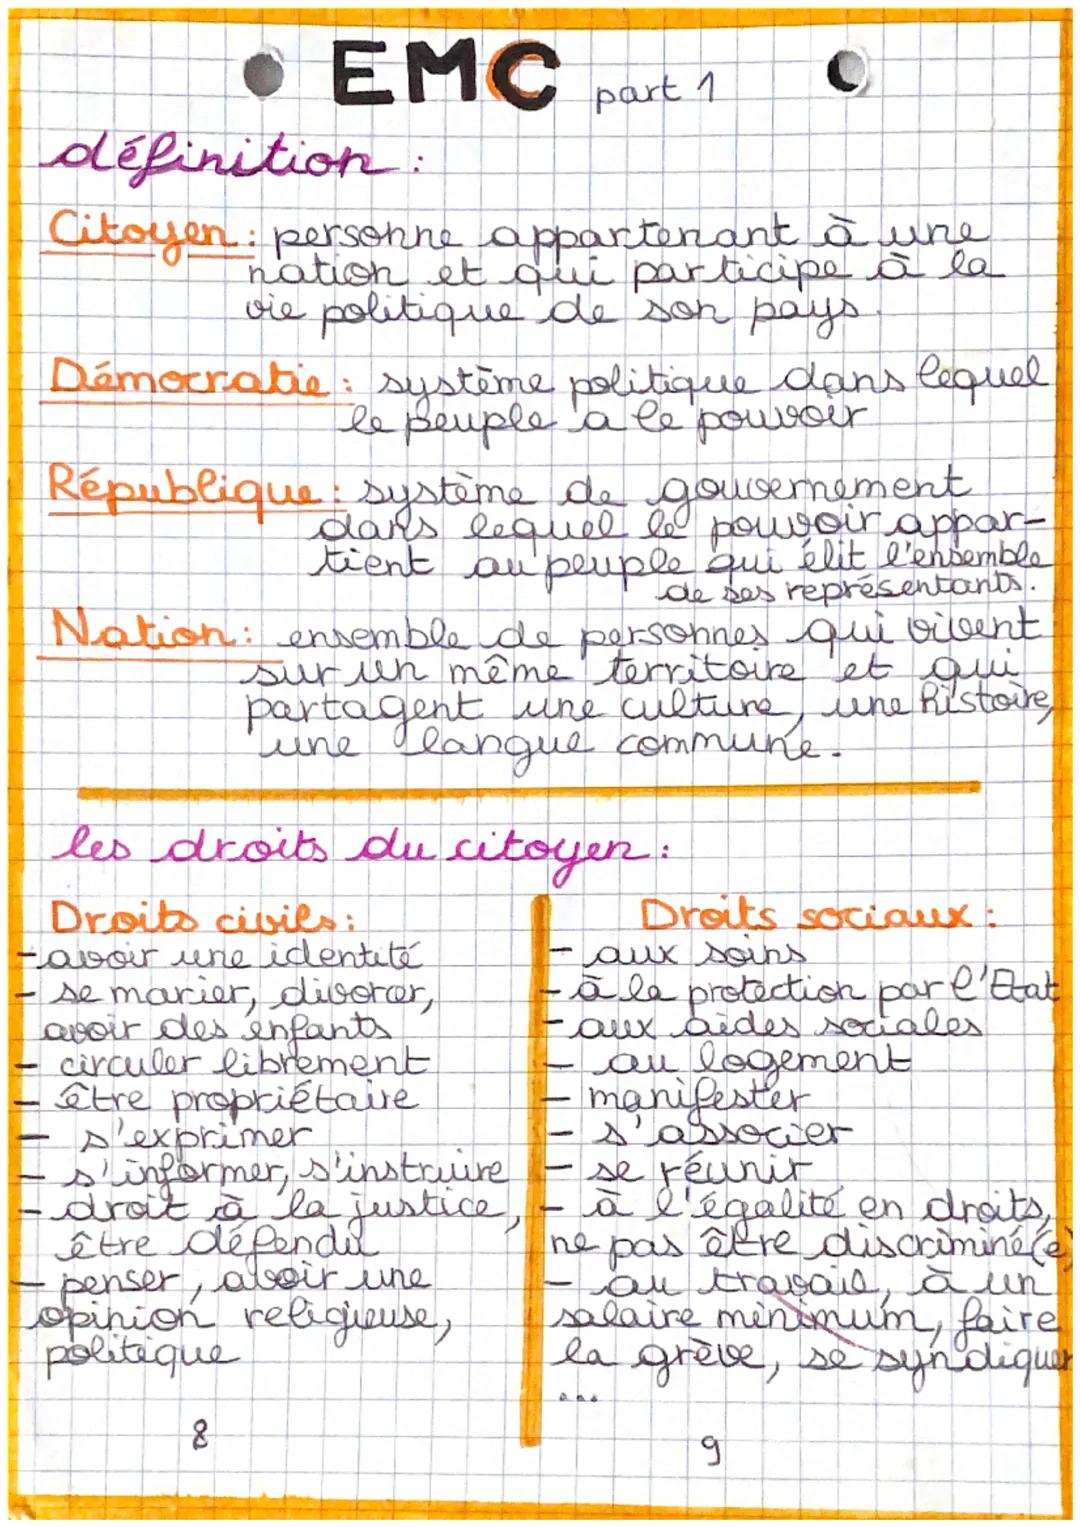 EMC part 1
définition :
Citoyen : personne appartenant à une
nation et qui participe à la
vie politique de son pays.
Démocratie : système politique dans lequel
le peuple a le pouvoir
République : système de gouvernement
dans lequel le pouvoir appar-
tient au peuple qui élit l'ensemble
de ses représentants.
Nation : ensemble de personnes qui vivent
sur un même territoire et qui
partagent une culture, une histoire,
une langue commune.
les droits du citoyen :
Droits civils :
- avoir une identité
- se marier, divorcer,
avoir des enfants
- circuler librement
- être propriétaire
- s'exprimer
- s'informer, s'instruire
- droit à la justice,
être défendu
- penser, avoir une
opinion religieuse,
politique
8
Droits sociaux :
- aux soins
- à la protection par l'Etat
- aux aides sociales
- au logement
- manifester
- s'associer
- se réunir
- à l'égalité en droits,
ne pas être discriminé(e)
- au travail, à un
salaire minimum, faire
la grève, se syndiquer
...
9